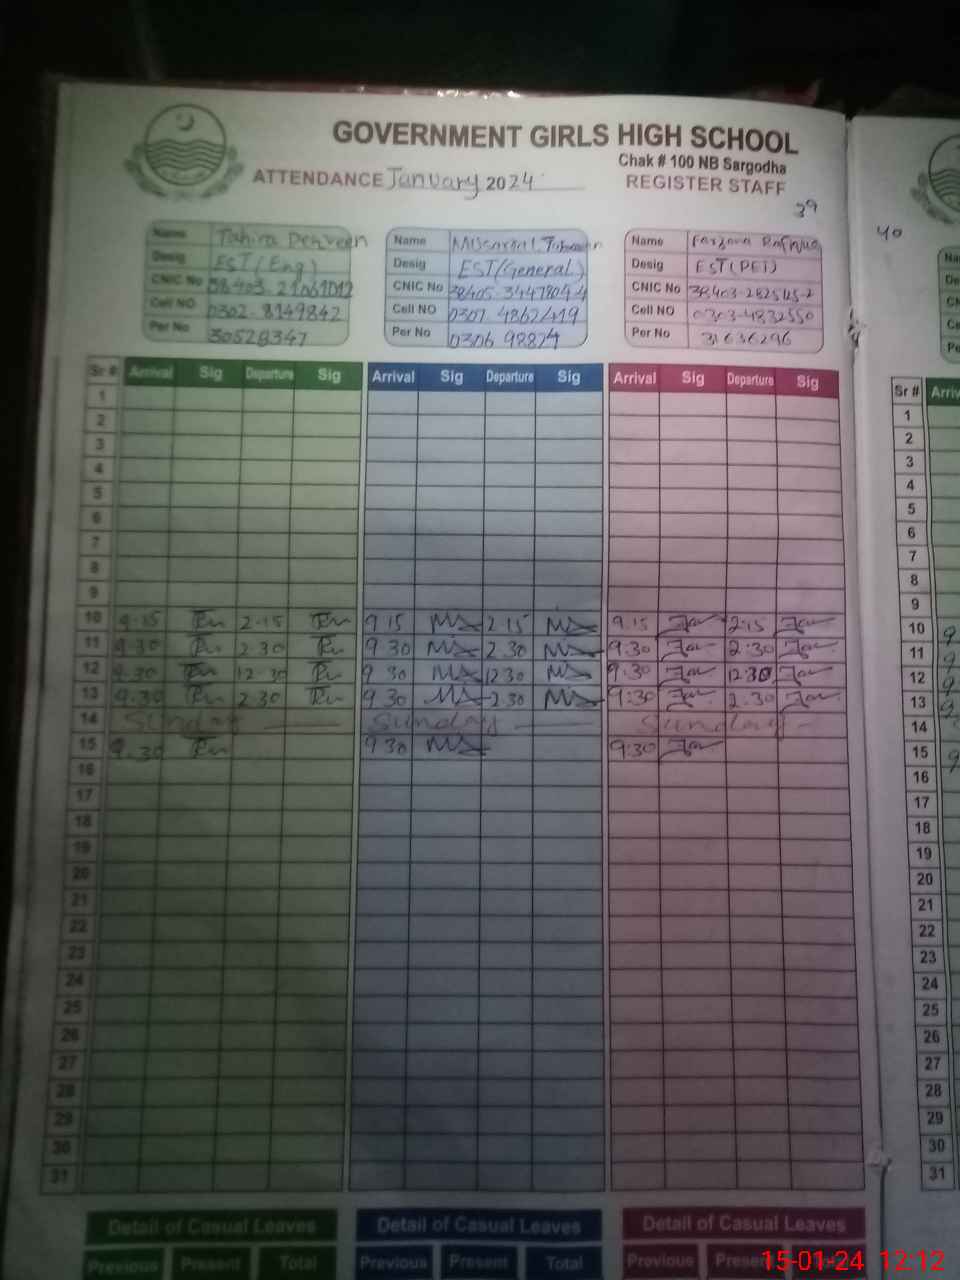 GOVERNMENT GIRLS HIGH SCHOOL
Chak # 100 NB Sargodha
ATTENDANCE January 2024 REGISTER STAFF
39
40
Name Tahira Perveen
Desig EST (Eng)
CNIC No
Cell NO 0302-8149842
Per No 30528347
Name Musarrat
Desig EST (General)
CNIC No
Cell NO 0307 4862419
Per No
Name Farzana
Desig EST (PET)
CNIC No
Cell NO 0303-4832550
Per No 31636296
Sr # Arrival Sig Departure Sig Arrival Sig Departure Sig Arrival Sig Departure Sig Sr #
1 1
2 2
3 3
4 4
5 5
6 6
7 7
8 8
9 9
10 9.15 2.15 9 15 2 15 9.15 2.15 10
11 9.30 2.30 9 30 2.30 9.30 2.30 11
12 9.30 12.30 9 30 12 30 9.30 12.30 12
13 9.30 2.30 9 30 2.30 9.30 2.30 13
14 Sunday Sunday Sunday 14
15 9.30 9 30 9.30 15
16 16
17 17
18 18
19 19
20 20
21 21
22 22
23 23
24 24
25 25
26 26
27 27
28 28
29 29
30 30
31 31
Detail of Casual Leaves Detail of Casual Leaves Detail of Casual Leaves
Previous Present Total Previous Present Total Previous
15-01-24 12:12